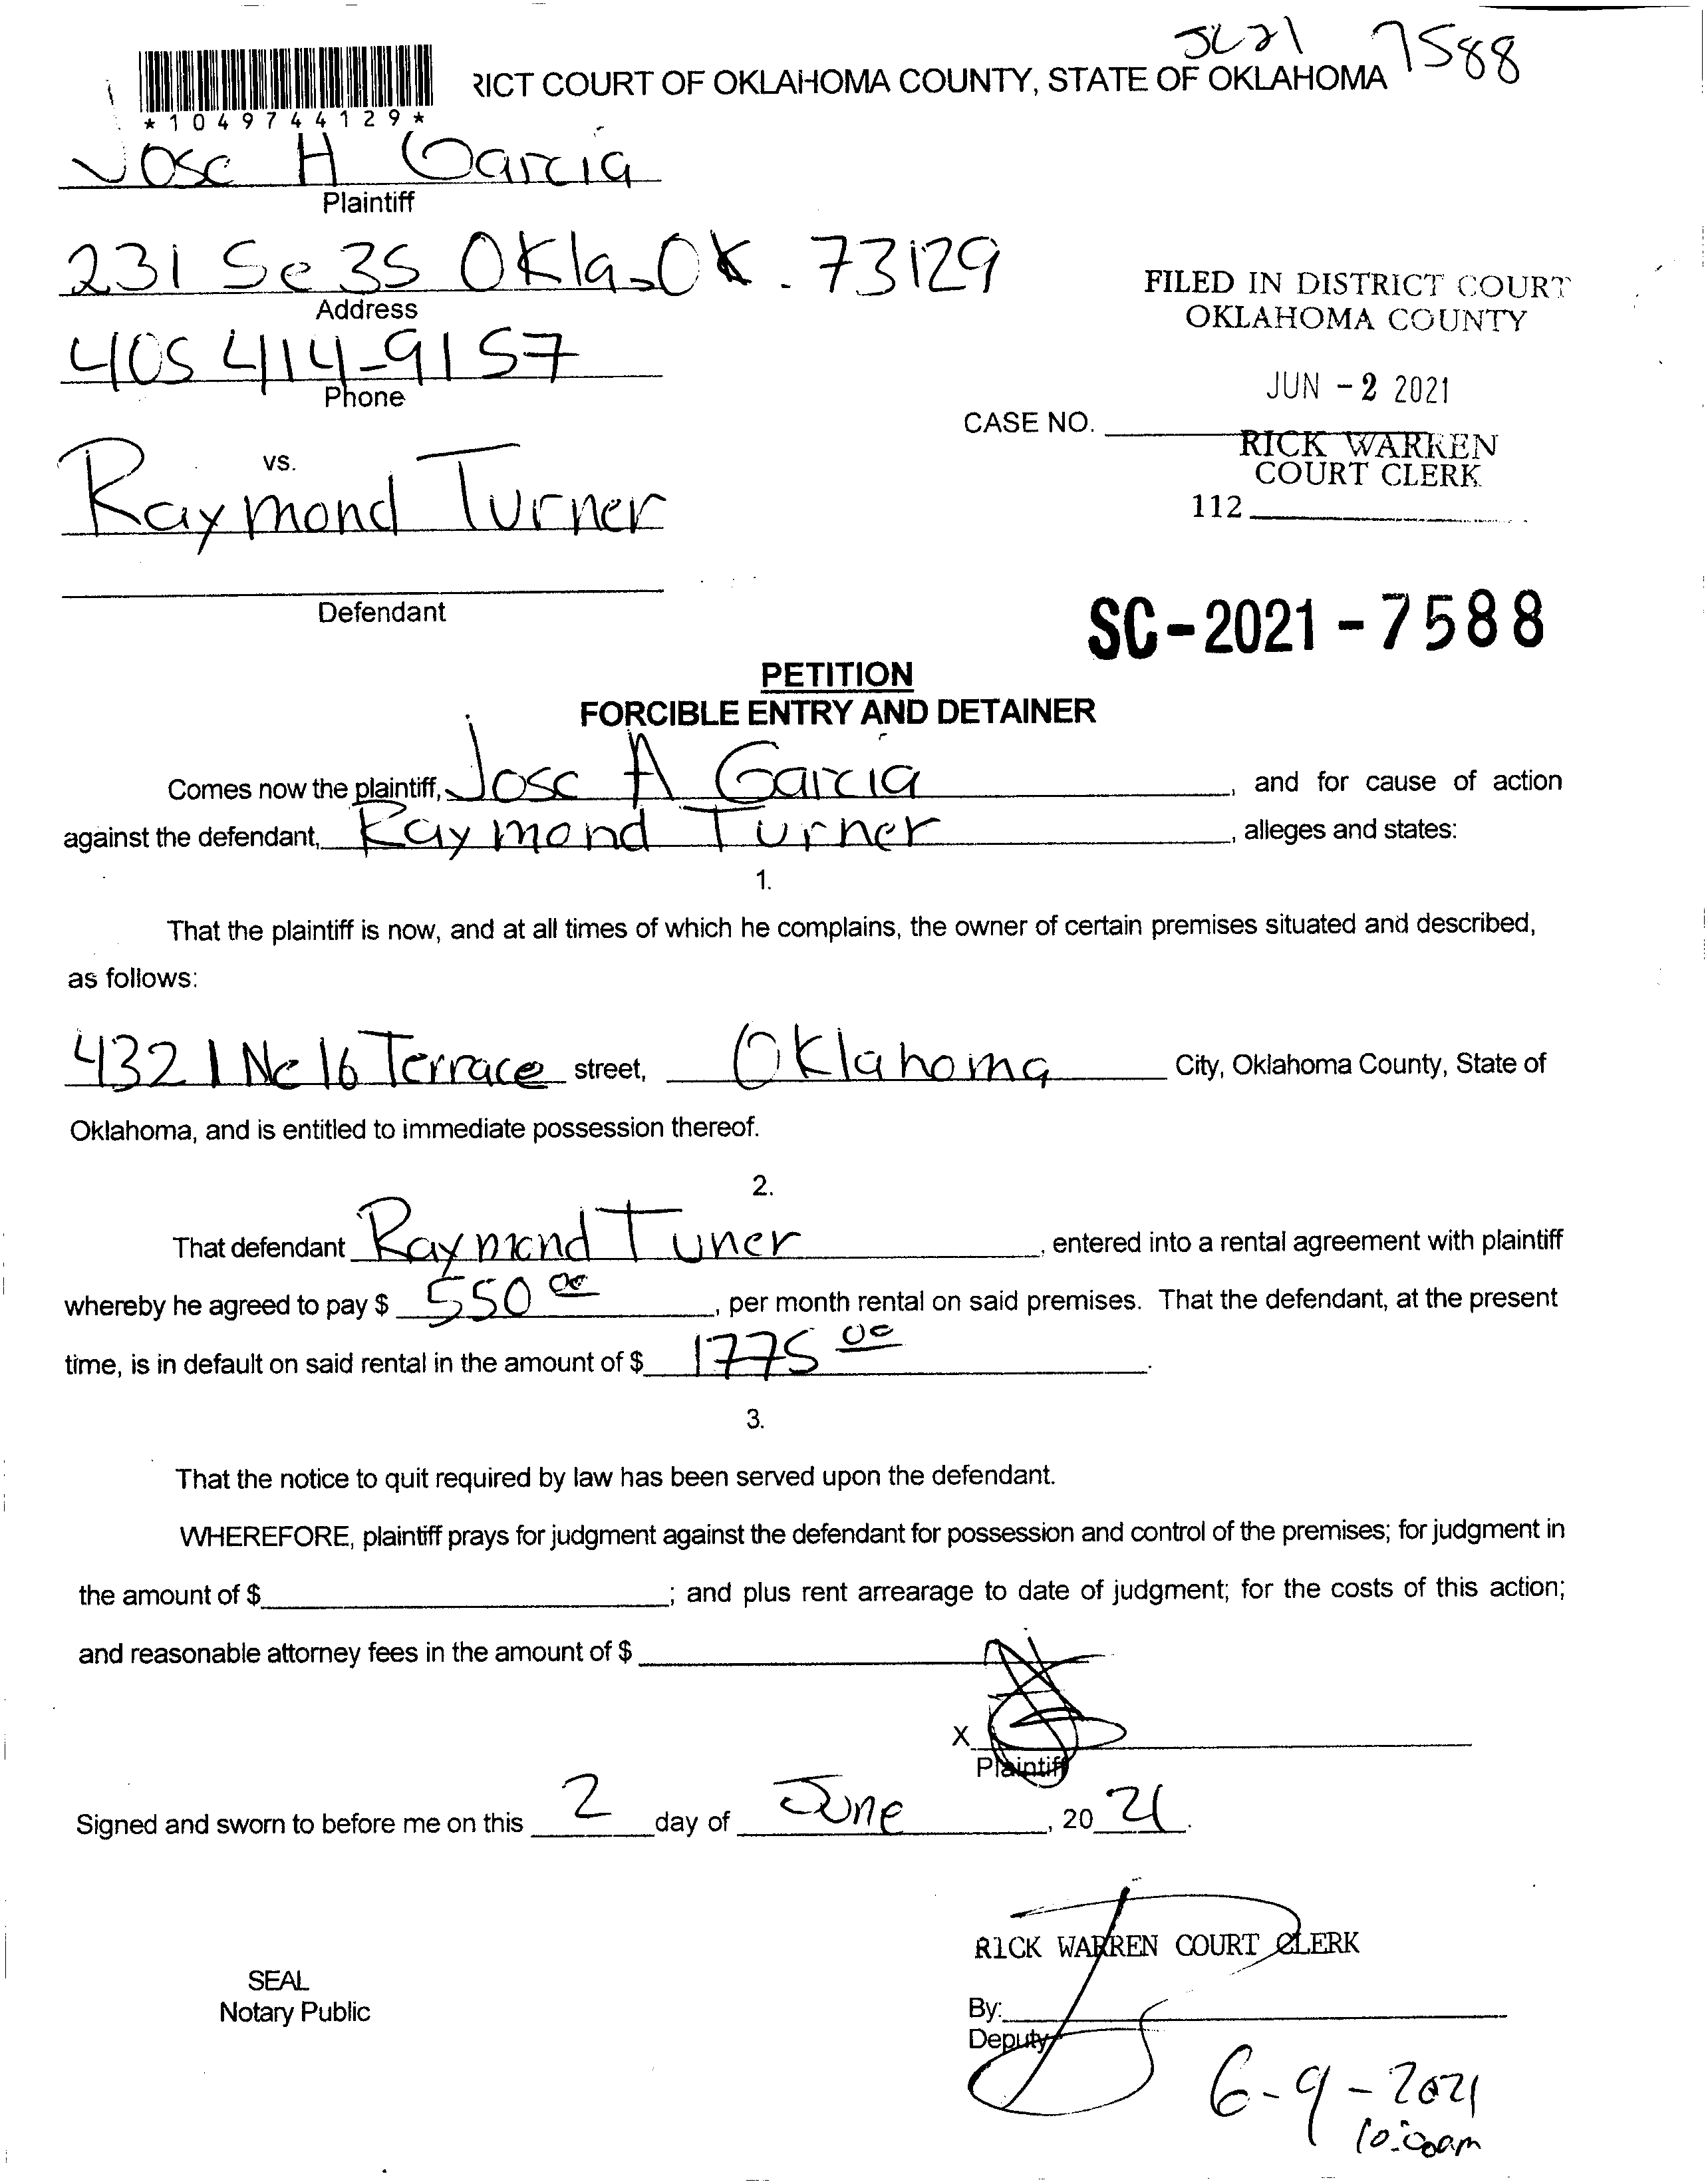 SC21 7588
RICT COURT OF OKLAHOMA COUNTY, STATE OF OKLAHOMA
*1049744129*
Jose A Garcia
Plaintiff
231 Se 35 Okla OK. 73129
Address
405 414-9157
Phone
FILED IN DISTRICT COURT
OKLAHOMA COUNTY
JUN - 2 2021
CASE NO.
RICK WARREN
COURT CLERK
112
vs.
Raymond Turner
Defendant
SC-2021-7588
PETITION
FORCIBLE ENTRY AND DETAINER
Comes now the plaintiff, Jose A Garcia, and for cause of action
against the defendant, Raymond Turner, alleges and states:
1.
That the plaintiff is now, and at all times of which he complains, the owner of certain premises situated and described,
as follows:
4321 Ne 16 Terrace street, Oklahoma City, Oklahoma County, State of
Oklahoma, and is entitled to immediate possession thereof.
2.
That defendant Raymond Tuner, entered into a rental agreement with plaintiff
whereby he agreed to pay $ 550 00, per month rental on said premises. That the defendant, at the present
time, is in default on said rental in the amount of $ 1775 00.
3.
That the notice to quit required by law has been served upon the defendant.
WHEREFORE, plaintiff prays for judgment against the defendant for possession and control of the premises; for judgment in
the amount of $ ; and plus rent arrearage to date of judgment; for the costs of this action;
and reasonable attorney fees in the amount of $
X
Plaintiff
Signed and sworn to before me on this 2 day of June, 20 21.
RICK WARREN COURT CLERK
SEAL
Notary Public
By:
Deputy
6-9-2021
10:00am